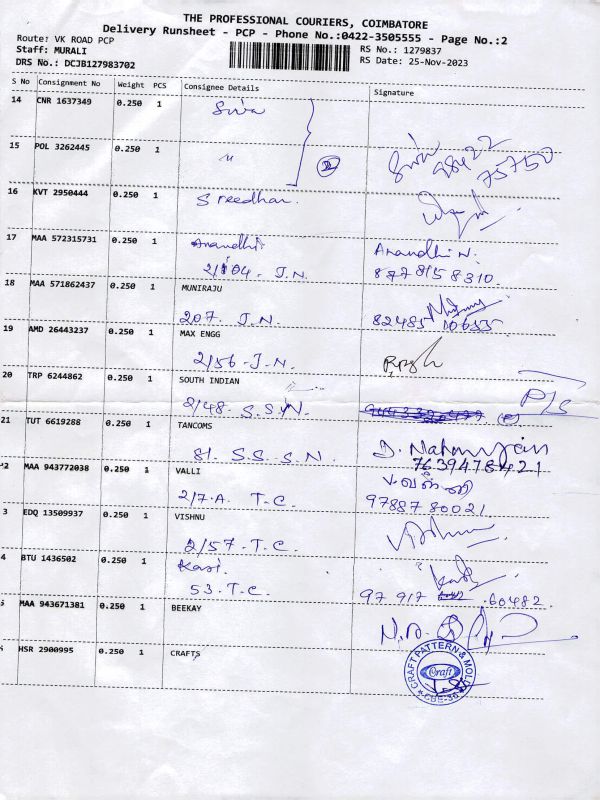 THE PROFESSIONAL COURIERS, COIMBATORE
Delivery Runsheet - PCP - Phone No.:0422-3505555 - Page No.:2
Route: VK ROAD PCP
Staff: MURALI
DRS No.: DCJB127983702
RS No.: 1279837
RS Date: 25-Nov-2023
S No Consignment No Weight PCS Consignee Details Signature
14 CNR 1637349 0.250 1 Siva
15 POL 3262445 0.250 1 "
Siva 98422
75750
16 KVT 2950444 0.250 1 Sreedhar.
17 MAA 572315731 0.250 1 Anandhi Anandhi N.
2/104. J.N. 877 8158310
18 MAA 571862437 0.250 1 MUNIRAJU
207. J.N. 82485 10655
19 AMD 26443237 0.250 1 MAX ENGG
2/56-J.N.
20 TRP 6244862 0.250 1 SOUTH INDIAN
2/48. S.S.N.
21 TUT 6619288 0.250 1 TANCOMS
81. S.S.S.N. 7639478421
2 MAA 943772038 0.250 1 VALLI
2/7.A T.C. 97887 80021
3 EDQ 13509937 0.250 1 VISHNU
2/57.T.C.
4 BTU 1436502 0.250 1 Kasi.
53.T.C. 97 917 60482
MAA 943671381 0.250 1 BEEKAY
HSR 2900995 0.250 1 CRAFTS
CRAFT PATTERN & MOLD
Craft